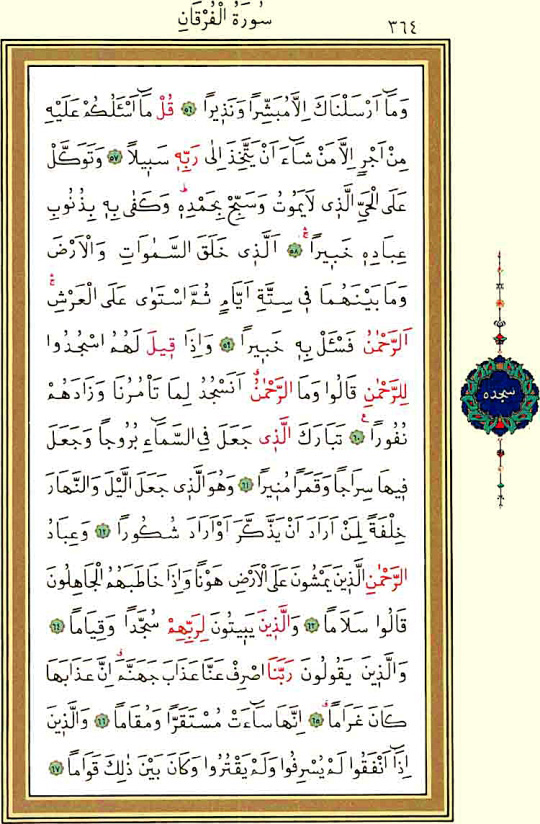 سُورَةُ الْفُرْقَانِ
٣٦٤
وَمَٓا اَرْسَلْنَاكَ اِلَّا مُبَشِّرًا وَنَذ۪يرًا ﴿٥٦﴾ قُلْ مَٓا اَسْـَٔلُكُمْ عَلَيْهِ
مِنْ اَجْرٍ اِلَّا مَنْ شَٓاءَ اَنْ يَتَّخِذَ اِلٰى رَبِّه۪ سَب۪يلًا ﴿٥٧﴾ وَتَوَكَّلْ
عَلَى الْحَيِّ الَّذ۪ي لَا يَمُوتُ وَسَبِّحْ بِحَمْدِه۪ۜ وَكَفٰى بِه۪ بِذُنُوبِ
عِبَادِه۪ خَب۪يرًاۚ ﴿٥٨﴾ اَلَّذ۪ي خَلَقَ السَّمٰوَاتِ وَالْاَرْضَ
وَمَا بَيْنَهُمَا ف۪ي سِتَّةِ اَيَّامٍ ثُمَّ اسْتَوٰى عَلَى الْعَرْشِۚ
اَلرَّحْمٰنُ فَسْـَٔلْ بِه۪ خَب۪يرًا ﴿٥٩﴾ وَاِذَا ق۪يلَ لَهُمُ اسْجُدُوا
لِلرَّحْمٰنِ قَالُوا وَمَا الرَّحْمٰنُۗ اَنَسْجُدُ لِمَا تَأْمُرُنَا وَزَادَهُمْ
نُفُورًا۟ ﴿٦٠﴾ تَبَارَكَ الَّذ۪ي جَعَلَ فِي السَّمَٓاءِ بُرُوجًا وَجَعَلَ
ف۪يهَا سِرَاجًا وَقَمَرًا مُن۪يرًا ﴿٦١﴾ وَهُوَ الَّذ۪ي جَعَلَ الَّيْلَ وَالنَّهَارَ
خِلْفَةً لِمَنْ اَرَادَ اَنْ يَذَّكَّرَ اَوْ اَرَادَ شُكُورًا ﴿٦٢﴾ وَعِبَادُ
الرَّحْمٰنِ الَّذ۪ينَ يَمْشُونَ عَلَى الْاَرْضِ هَوْنًا وَاِذَا خَاطَبَهُمُ الْجَاهِلُونَ
قَالُوا سَلَامًا ﴿٦٣﴾ وَالَّذ۪ينَ يَب۪يتُونَ لِرَبِّهِمْ سُجَّدًا وَقِيَامًا ﴿٦٤﴾
وَالَّذ۪ينَ يَقُولُونَ رَبَّنَا اصْرِفْ عَنَّا عَذَابَ جَهَنَّمَۗ اِنَّ عَذَابَهَا
كَانَ غَرَامًاۗ ﴿٦٥﴾ اِنَّهَا سَٓاءَتْ مُسْتَقَرًّا وَمُقَامًا ﴿٦٦﴾ وَالَّذ۪ينَ
اِذَٓا اَنْفَقُوا لَمْ يُسْرِفُوا وَلَمْ يَقْتُرُوا وَكَانَ بَيْنَ ذٰلِكَ قَوَامًا ﴿٦٧﴾
سجده